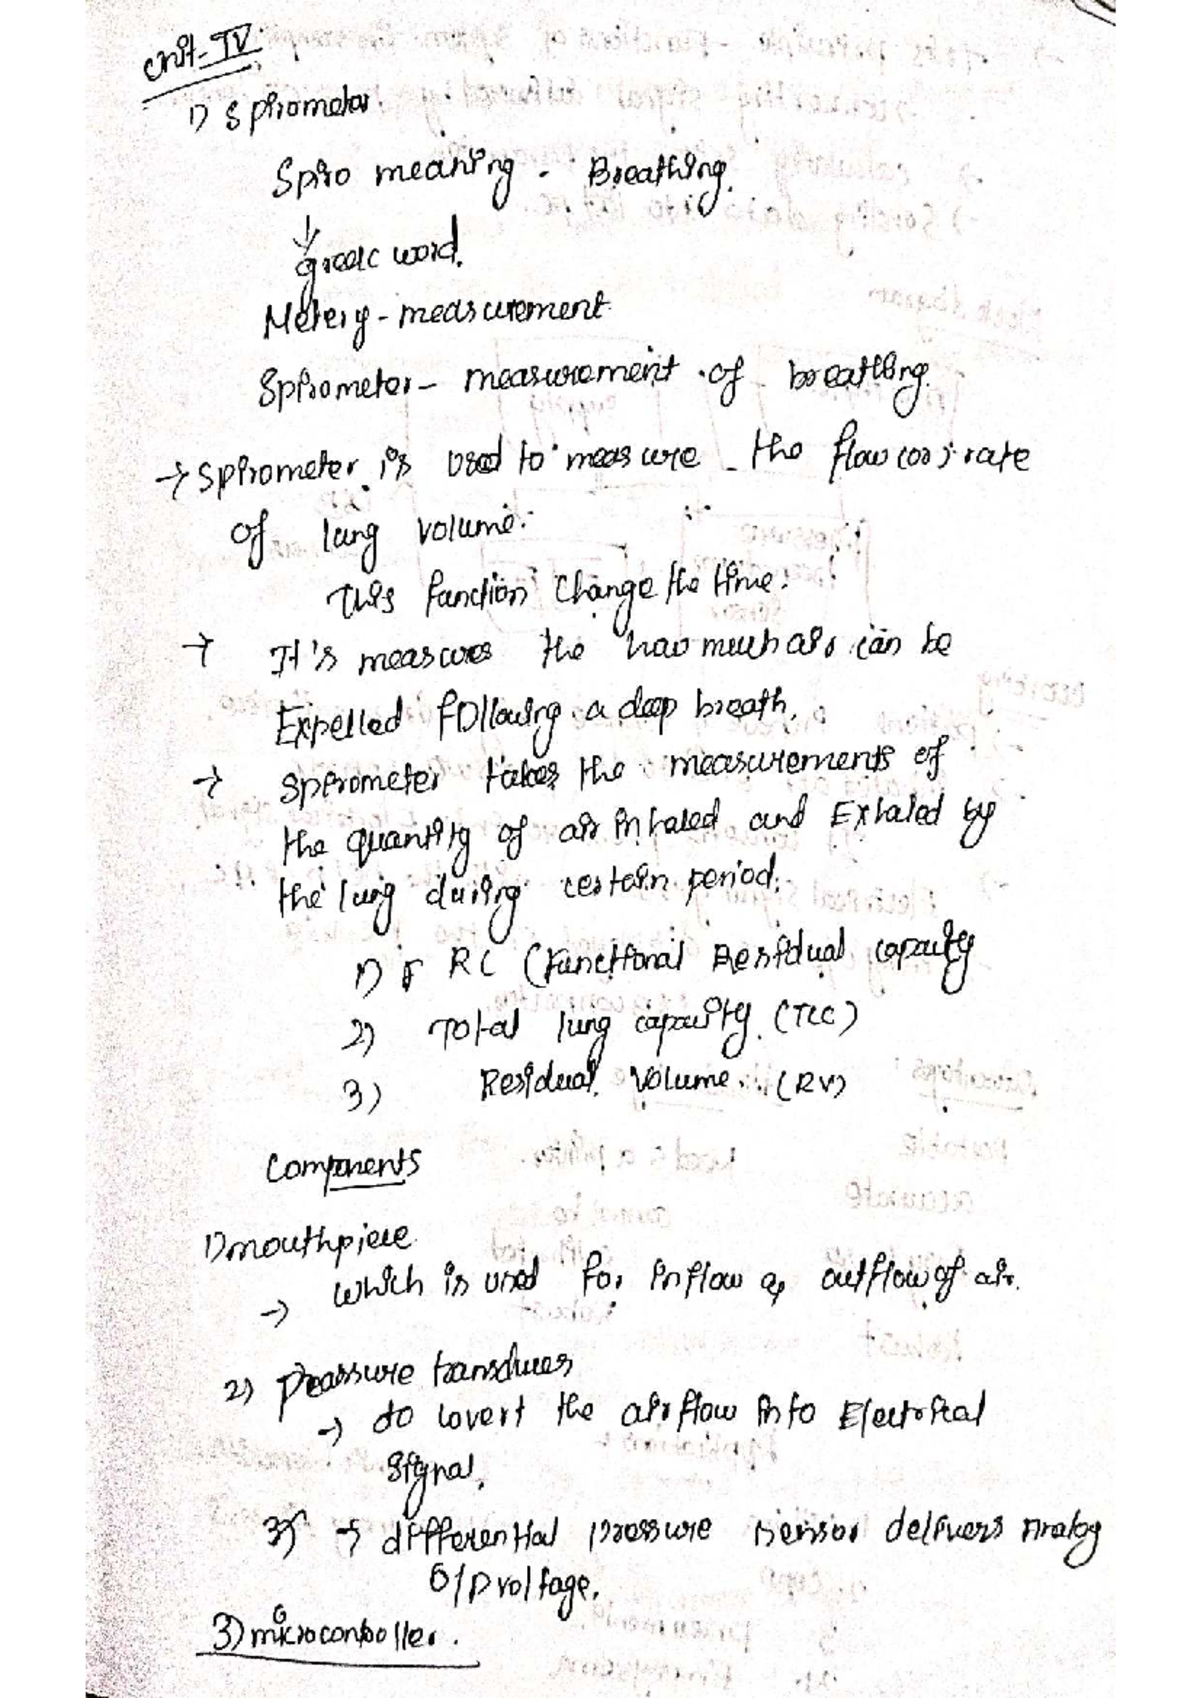 Unit-IV
1) Spirometer.
Spiro meaning - Breathing.
↓
greek word.
Metery - measurement
Spirometer - measurement of breathing.
→ Spirometer is used to measure the flow (or) rate
of lung volume.
This function change the time.
→ It's measures the how much air can be
Expelled following a deep breath.
→ Spirometer takes the measurements of
the quantity of air inhaled and Exhaled by
the lung during certain period.
1) F RC (Functional Residual capacity
2) Total lung capacity. (TLC)
3) Residual Volume. (RV)
Components
1) mouthpiece
→ which is used for inflow & outflow of air.
2) Pressure transducers
→ to covert the air flow into Electrical
Signal.
3) → differential pressure sensor delivers Analog
O/P voltage.
3) microcontroller.